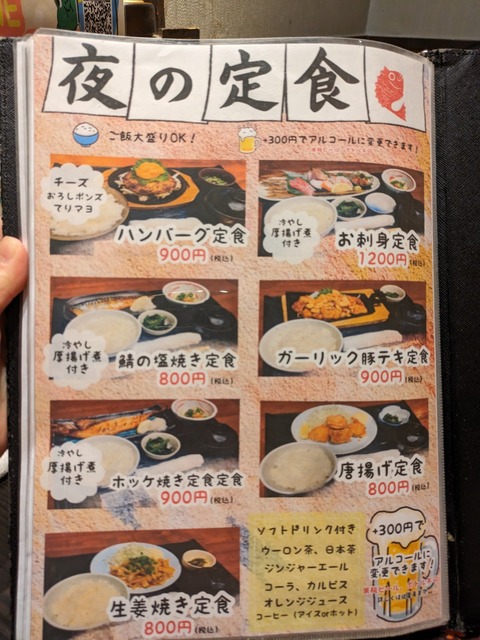 夜の定食
ご飯大盛りOK！
+300円でアルコールに変更できます！
チーズ
おろしポンズ
てりマヨ
ハンバーグ定食
900円(税込)
冷やし
厚揚げ煮
付き
お刺身定食
1200円(税込)
冷やし
厚揚げ煮
付き
鯖の塩焼き定食
800円(税込)
ガーリック豚テキ定食
900円(税込)
冷やし
厚揚げ煮
付き
ホッケ焼き定食定食
900円(税込)
唐揚げ定食
800円(税込)
生姜焼き定食
800円(税込)
ソフトドリンク付き
ウーロン茶、日本茶
ジンジャーエール
コーラ、カルピス
オレンジジュース
コーヒー（アイスorホット）
+300円で
アルコールに
変更できます！